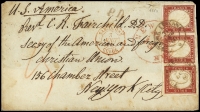 U. S. America.
Rev. C. R. Fairchild D.D.
Secy of the American and foreign
Christian Union
156 Chamber Street
New York City